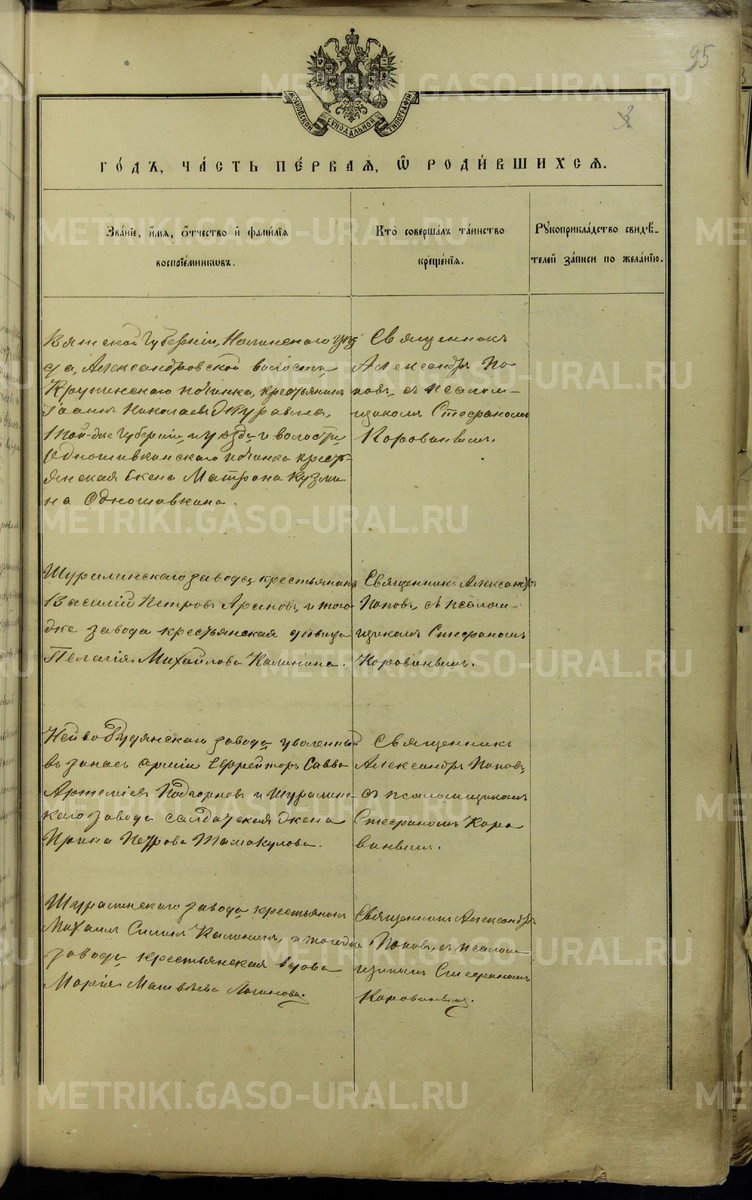 95
МОСКОВСКОЙ СѴНОДАЛЬНОЙ ТИПОГРАФІИ
ГО́ДЪ, ЧА́СТЬ ПЕ́РВАЯ, Ѡ҆ РОДИ́ВШИХСЯ.
Зва́нїе, и҆́мя, ѻ҆́тчество и҆ фами́лїя
воспрїе́мниковъ.
Кто̀ соверша́лъ та́инство
креще́нїя.
Рꙋкоприкла́дство свидѣ́-
телей за́писи по жела́нїю.
Вятской Губерніи, Нолинскаго уѣз
да, Александровской волости
починка, крестьянинъ
Іоаннъ Николаевъ Журавлевъ,
той-же Губерніи и уѣзда и волости
Одношивкинскаго починка крест
янская жена Матрона Кузми
на Одношивкина.
Священникъ
Александръ По
повъ, съ псалом-
щикомъ Стефаномъ
Коровинымъ.
Шуралинскаго завода, крестьянинъ
Василій Петровъ Аравинъ и того
же завода крестьянская дѣвица
Пелагія Михайлова Калинина.
Священникъ Александръ
Поповъ, съ псалом-
щикомъ Стефаномъ
Коровинымъ.
Нейво Рудянскаго завода уволенный
въ запасъ арміи Ефрейторъ Савва
Подкорновъ и Шуралинс
каго завода солдатская жена
Ирина Петрова Ташкулова.
Священникъ
Александръ Поповъ,
съ псаломщикомъ
Стефаномъ Коро
винымъ.
Шуралинскаго завода крестьянинъ
Михаилъ Силинъ Калининъ, и тогоже
завода крестьянская вдова
Марія Матвѣева Логинова.
Священникъ Александръ
Поповъ, съ псалом-
щикомъ Стефаномъ
Коровинымъ.
METRIKI.GASO-URAL.RU